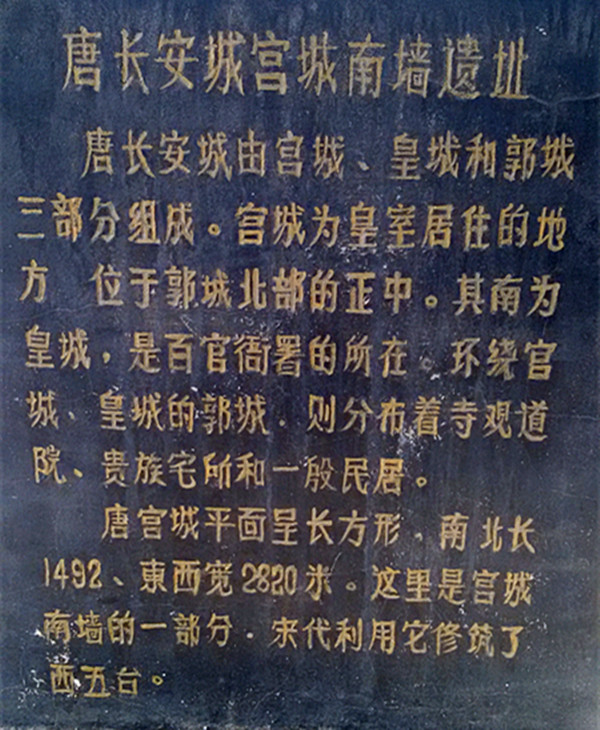 唐长安城宫城南墙遗址
唐长安城由宫城、皇城和郭城
三部分组成。宫城为皇室居住的地
方 位于郭城北部的正中。其南为
皇城，是百官衙署的所在。环绕宫
城、皇城的郭城．则分布着寺观道
院、贵族宅所和一般民居。
唐宫城平面呈长方形，南北长
1492、東西宽2820米。这里是宫城
南墙的一部分．宋代利用它修筑了
西五台。